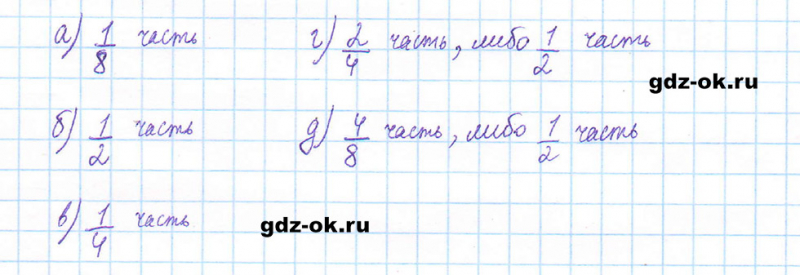 а) 1/8 часть
г) 2/4 часть, либо 1/2 часть
gdz-ok.ru
б) 1/2 часть
д) 4/8 часть, либо 1/2 часть
в) 1/4 часть
gdz-ok.ru